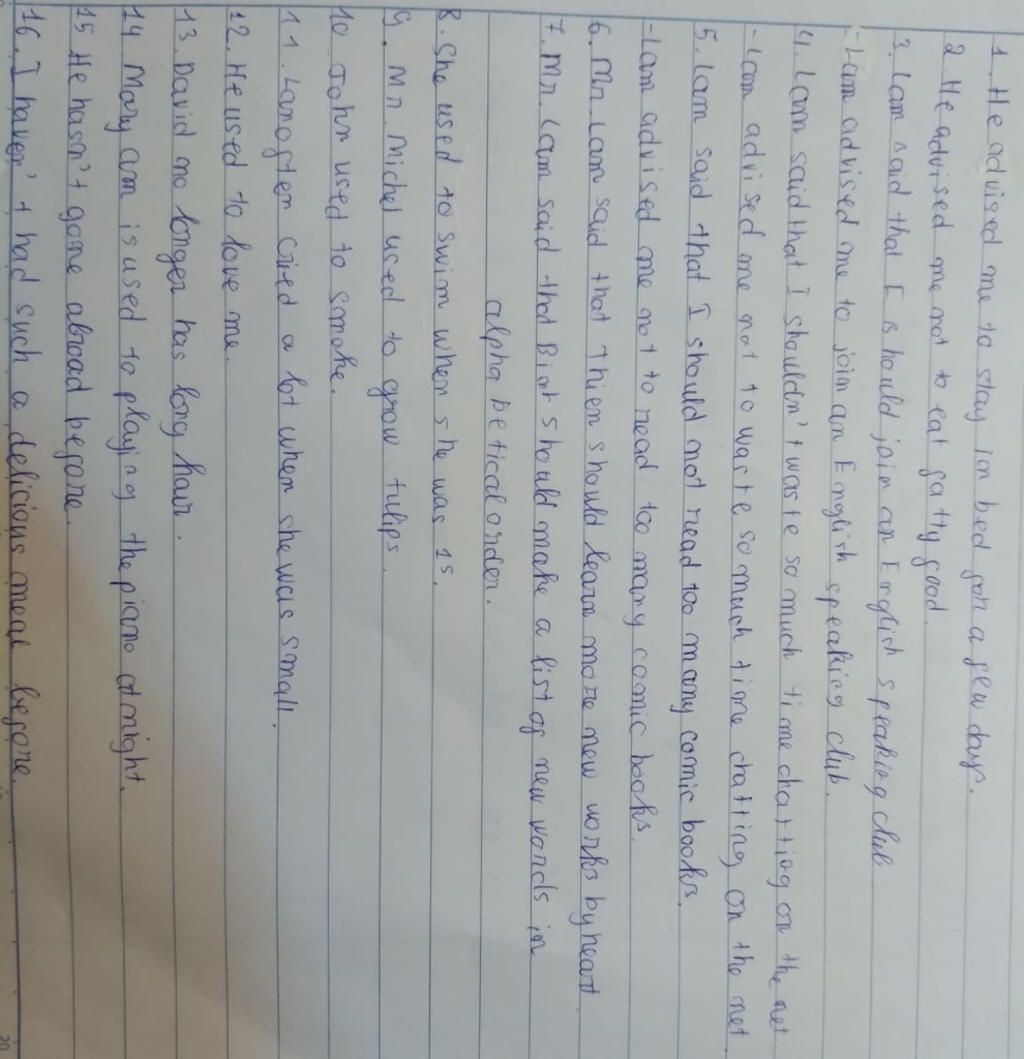 1. He advised me to stay in bed for a few days.
2. He advised me not to eat fatty food.
3. Lam said that I should join an English speaking club
- Lam advised me to join an English speaking club.
4. Lam said that I shouldn't waste so much time chatting on the net
- Lam advised me not to waste so much time chatting on the net
5. Lam said that I should not read too many comic books.
- Lam advised me not to read too many comic books.
6. Mr. Lam said that Thien should learn more new works by heart.
7. Mr. Lam said that Bin should make a list of new words in
alphabetical order.
8. She used to swim when she was 15.
9. Mr. Michel used to grow tulips.
10. John used to smoke.
11. Langter cried a lot when she was small.
12. He used to love me.
13. David no longer has long hair.
14. Mary am is used to playing the piano at night.
15. He hasn't gone abroad before.
16. I haven't had such a delicious meal before.
20